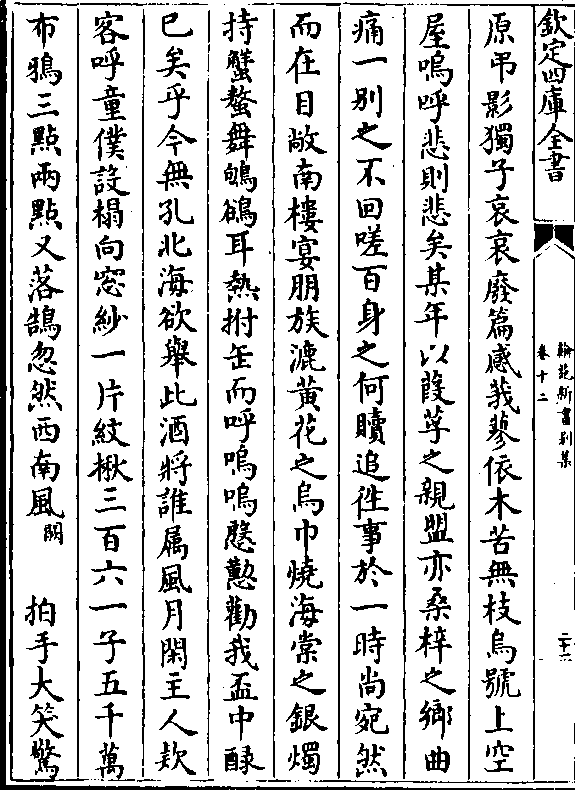 欽定四庫全書
翰苑新書別集
卷十二
二十二
原弔影獨子哀哀廢篇感莪蓼依木苦無枝烏號上空
屋嗚呼悲則悲矣某年以葭莩之親盟亦桑梓之鄉曲
痛一別之不回嗟百身之何贖追徃事於一時尚宛然
而在目敞南樓宴朋族漉黄花之烏巾燒海棠之銀燭
持蟹螯舞鴝鵒耳熱拊缶而呼嗚嗚慇懃勸我盃中醁
已矣乎今無孔北海欲舉此酒將誰屬風月閑主人欵
客呼童僕設榻向窓紗一片紋楸三百六一子五千萬
布鴉三點兩點又落鵠忽然西南風闕拍手大笑驚